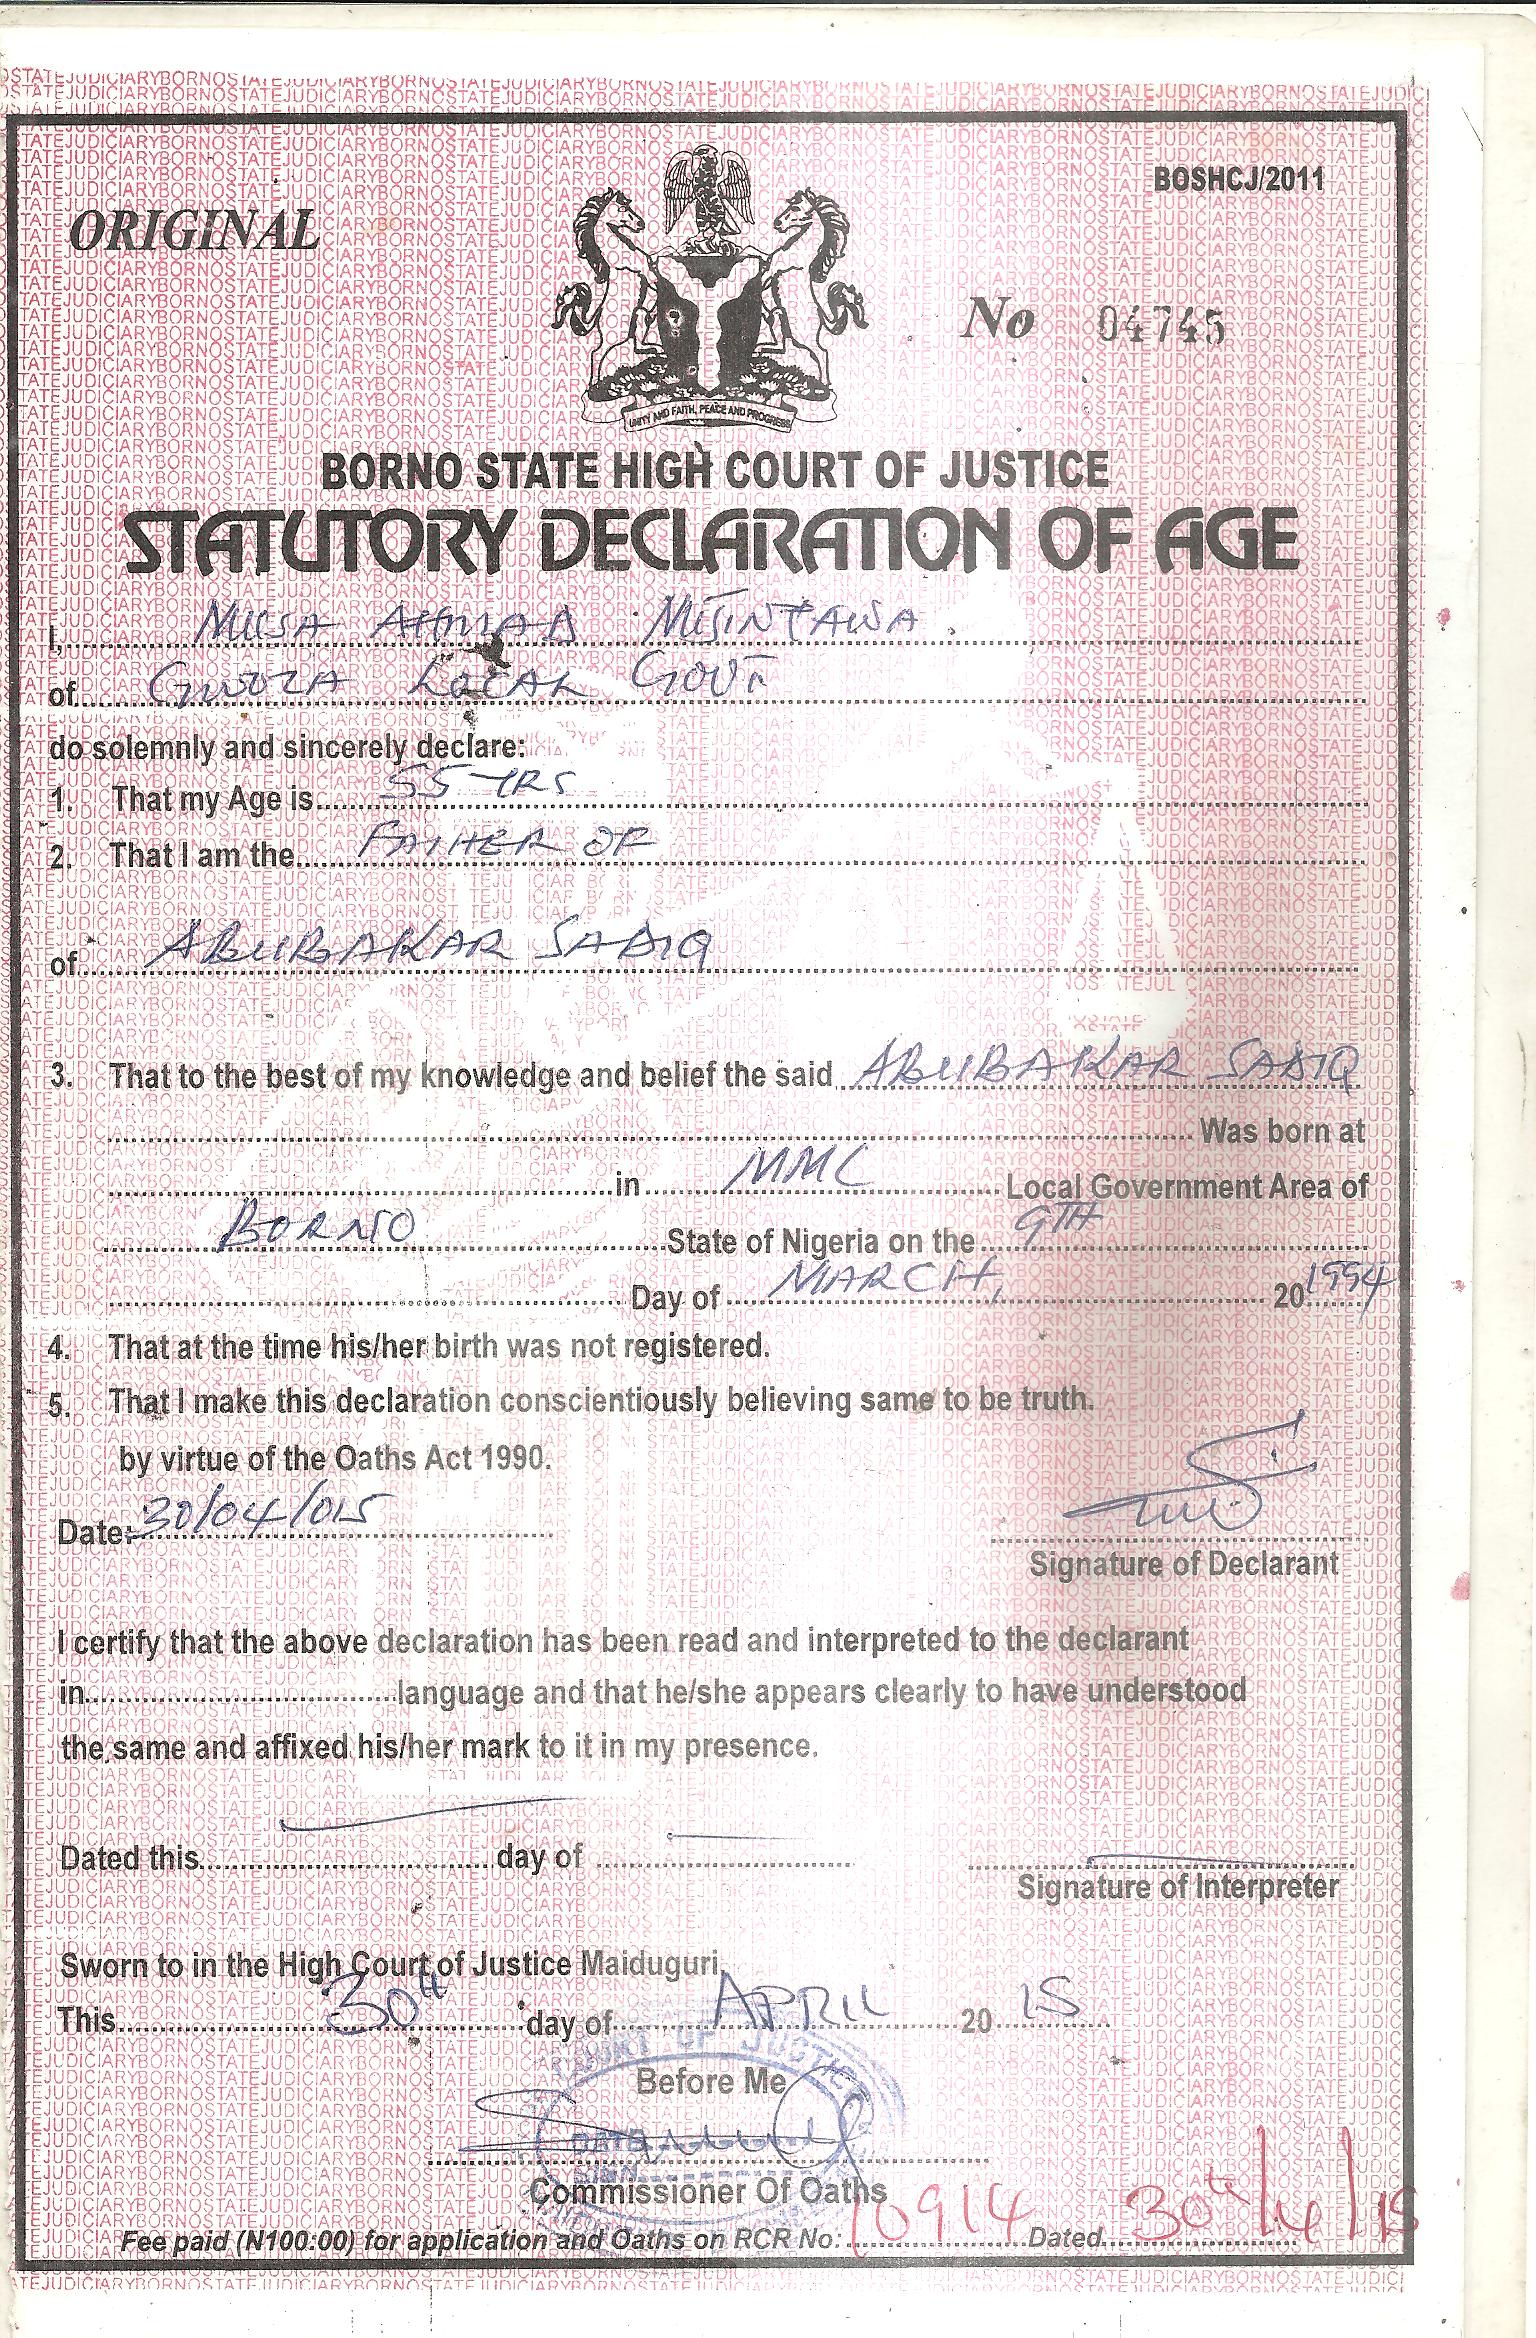 BOSHCJ/2011
ORIGINAL
No 04745
UNITY AND FAITH, PEACE AND PROGRESS
BORNO STATE HIGH COURT OF JUSTICE
STATUTORY DECLARATION OF AGE
I, MUSA AHMAD MSINTAWA
of GWOZA LOCAL GOVT
do solemnly and sincerely declare:
1. That my Age is 55 YRS
2. That I am the FATHER OF
of ABUBAKAR SADIQ
3. That to the best of my knowledge and belief the said ABUBAKAR SADIQ
Was born at
in MMC Local Government Area of
BORNO State of Nigeria on the 9TH
Day of MARCH, 20 1994
4. That at the time his/her birth was not registered.
5. That I make this declaration conscientiously believing same to be truth.
by virtue of the Oaths Act 1990.
Date: 30/04/015
Signature of Declarant
I certify that the above declaration has been read and interpreted to the declarant
in language and that he/she appears clearly to have understood
the same and affixed his/her mark to it in my presence.
Dated this day of
Signature of Interpreter
Sworn to in the High Court of Justice Maiduguri,
This 30th day of APRIL 20 15
COURT OF JUSTICE
Before Me
DATE
SIGN
Commissioner Of Oaths
Fee paid (N100:00) for application and Oaths on RCR No: 10914 Dated 30th/4/15